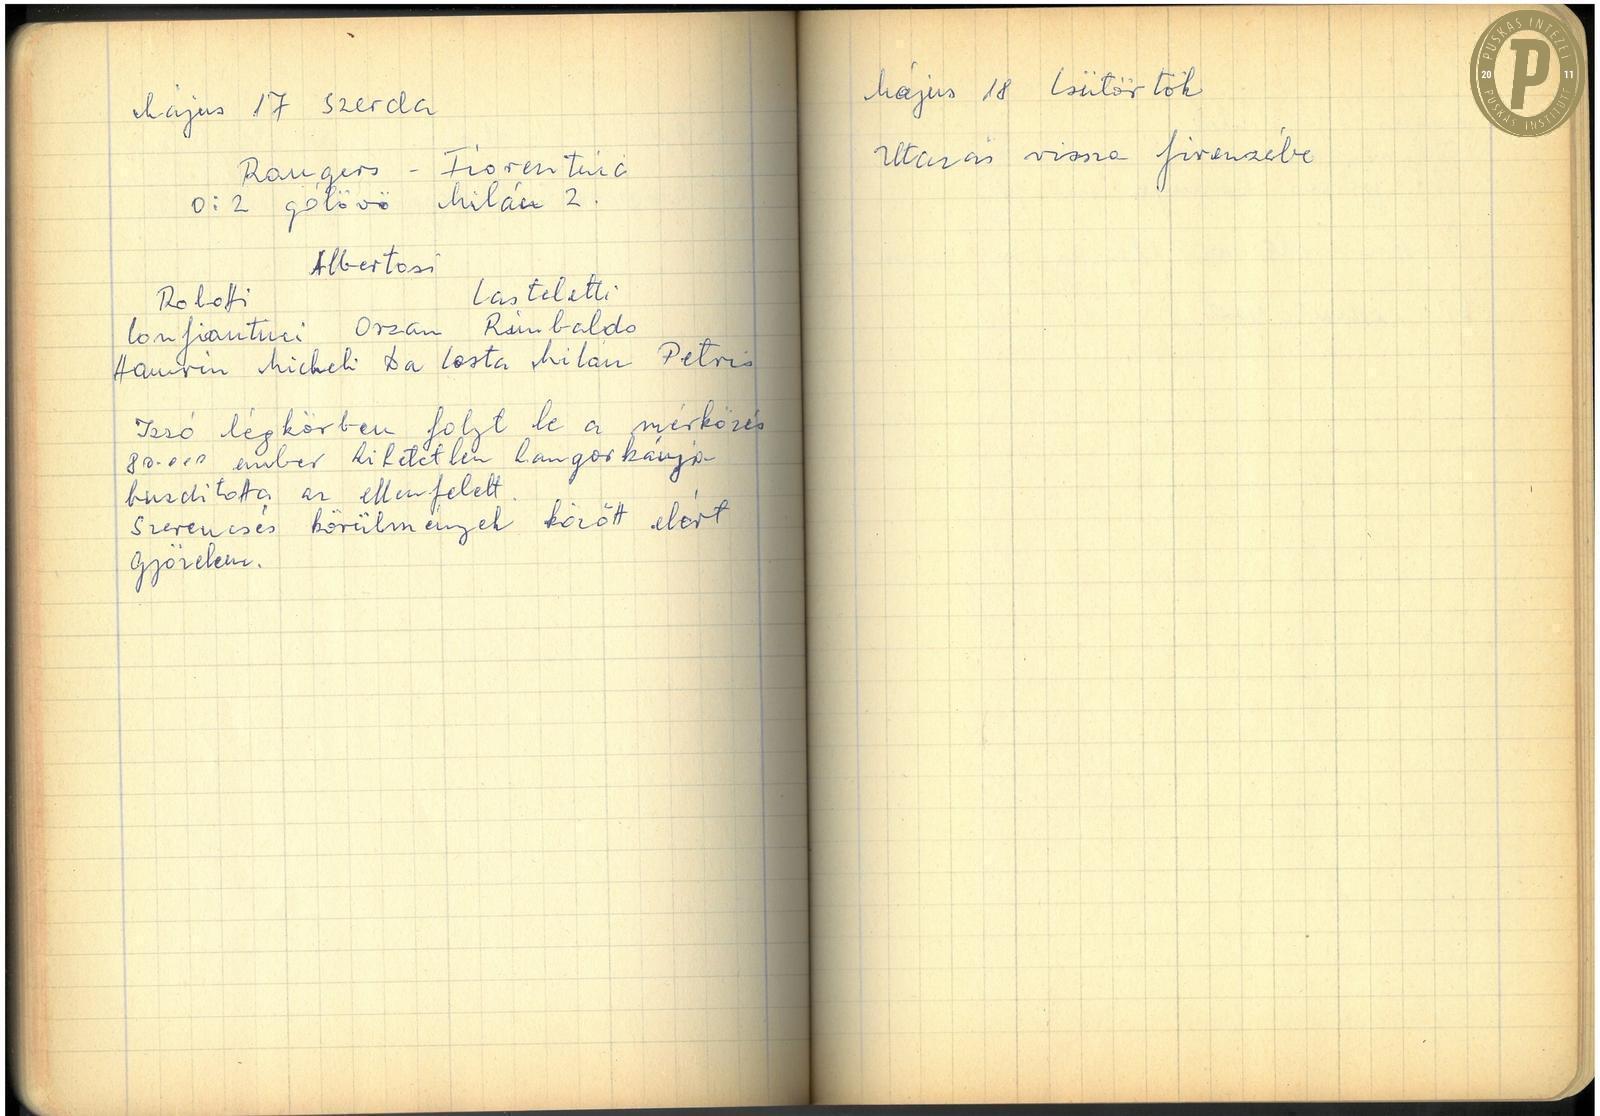 Május 17 Szerda
Rangers - Fiorentina
0:2 gólövö Milán 2.
Albertosi
Robotti Casteletti
Confiantini Orzan Rimbaldo
Hamrin Micheli Da Costa Milán Petris
Izzó légkörben folyt le a mérközés
80.000 ember hihetetlen hangorkánja
buzditotta az ellenfelett.
Szerencsés körülmények között elért
győzelem.
Május 18 Csütörtök
Utazás vissza firenzébe
PUSKÁS INTÉZET
20 P 11
PUSKÁS INSTITUTE